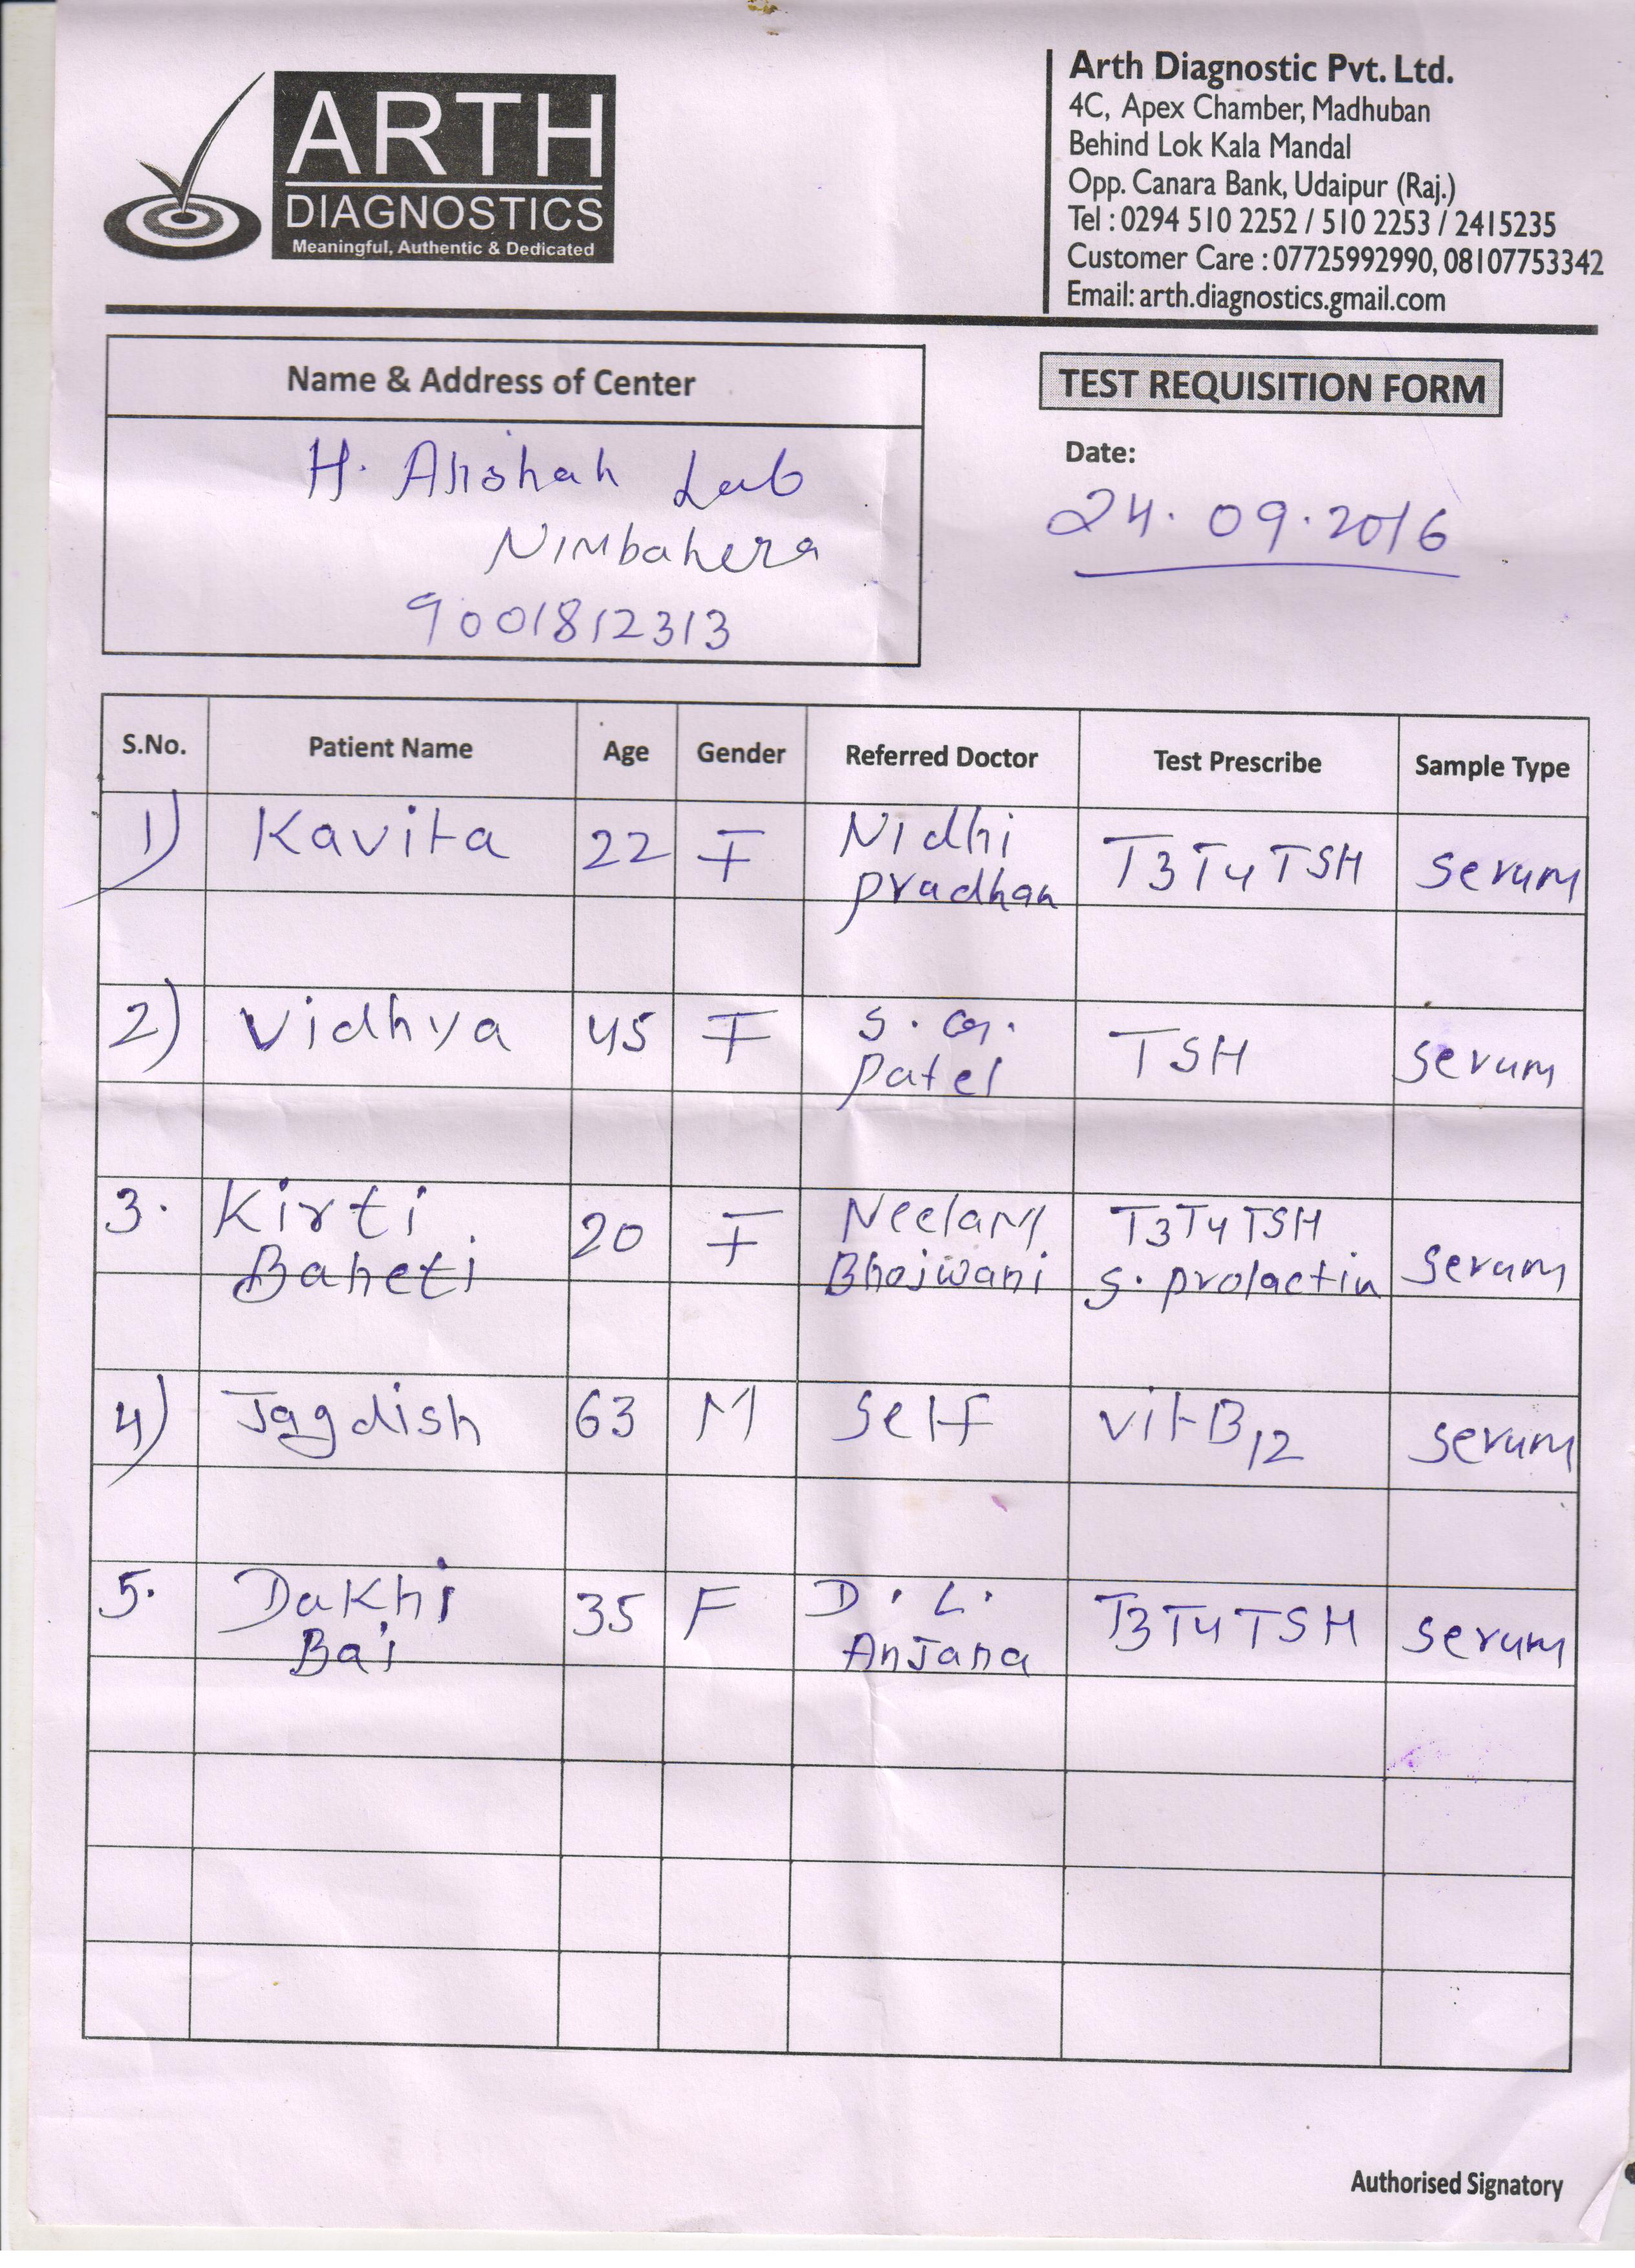 ARTH
DIAGNOSTICS
Meaningful, Authentic & Dedicated
Arth Diagnostic Pvt. Ltd.
4C, Apex Chamber, Madhuban
Behind Lok Kala Mandal
Opp. Canara Bank, Udaipur (Raj.)
Tel : 0294 510 2252 / 510 2253 / 2415235
Customer Care : 07725992990, 08107753342
Email: arth.diagnostics.gmail.com
Name & Address of Center
H. Lab
Nimbahera
9001812313
TEST REQUISITION FORM
Date:
24.09.2016
S.No. Patient Name Age Gender Referred Doctor Test Prescribe Sample Type
1) Kavita 22 F Nidhi pradhan T3T4TSH serum
2) Vidhya 45 F S. G. patel TSH serum
3. Kirti Baheti 20 F Neelam Bhojwani T3T4TSH S. prolactin serum
4) Jagdish 63 M Self vit B12 serum
5. Dakhi Bai 35 F D. L. Anjana T3T4TSH serum
Authorised Signatory